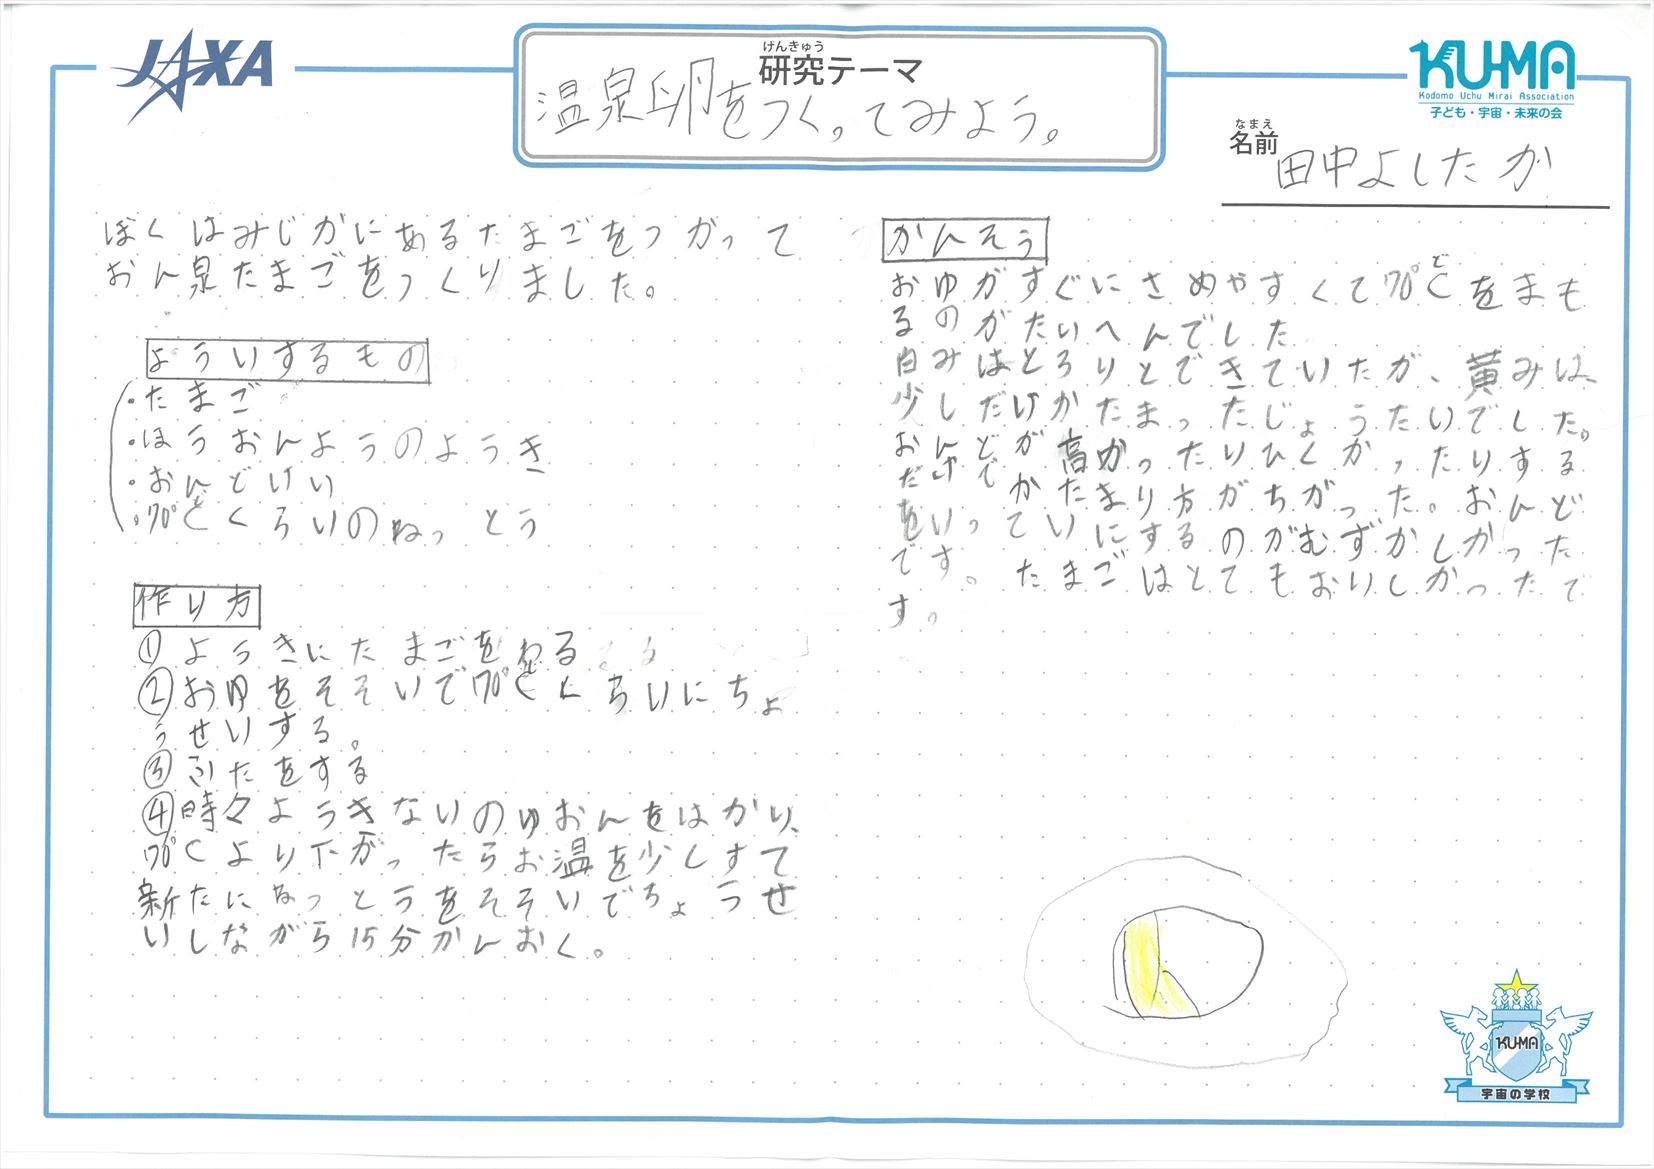 JAXA
けんきゅう
研究テーマ
温泉卵をつくってみよう。
KU-MA
Kodomo Uchu Mirai Association
子ども・宇宙・未来の会
なまえ
名前
田中よしたか
ぼくはみじかにあるたまごをつかって
おん泉たまごをつくりました。
よういするもの
・たまご
・ほうおんようのようき
・おんどけい
・70℃くらいのねっとう
ど
作り方
①ようきにたまごをわる
②おゆをそそいで70℃くらいにちょ
ど
うせいする。
③ふたをする
④時々ようきないのゆおんをはかり、
70℃より下がったらお温を少しすて
新たになっとうをそそいでちょうせ
いしながら15分かんおく。
かんそう
おゆがすぐにさめやすくて70℃をまも
ど
るのがたいへんでした
白みはとろりとできていたが、黄みは、
少しだけかたまったじょうたいでした。
おんどが高かったりひくかったりする
だけでかたまり方がちがった。おんど
をいっていにするのがむずかしかった
です。たまごはとてもおいしかったで
す。
KU-MA
宇宙の学校